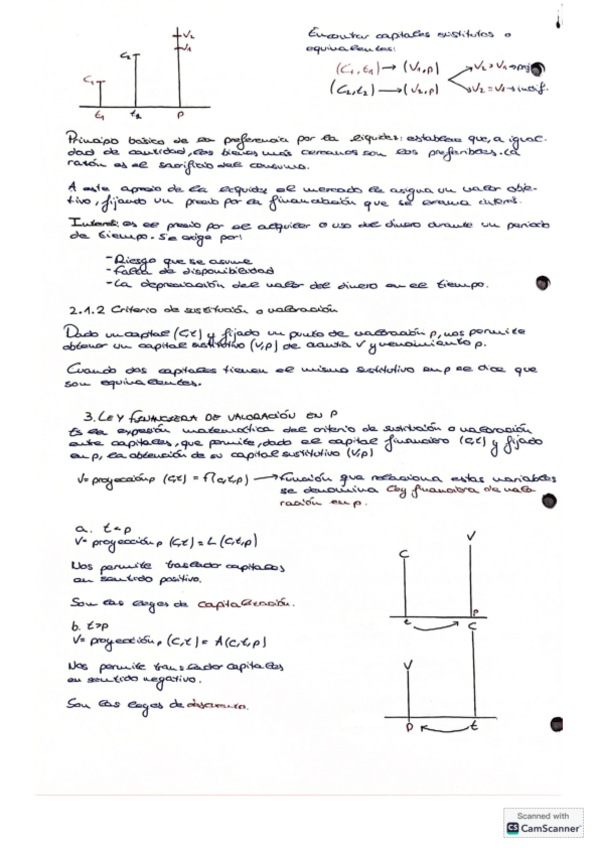 Encontrar capitales sustitutos o
equivalentes:
(C₁,t₁) → (V₁,p)
V₂ > V₁ →
(C₂,t₂) → (V₂,p)
V₂ = V₁ → indif.
C₁
C₂
V₂
V₁
t₁
t₂
p
Principio básico de la preferencia por la liquidez: establece que, a igual-
dad de cantidad, los bienes más cercanos son los preferibles. La
razón es el sacrificio del consumo.
A este aprecio de la liquidez el mercado le asigna un valor obje-
tivo, fijando un precio por la financiación que se llama interés.
Interés: es el precio por el adquirir o uso del dinero durante un periodo
de tiempo. Se exige por:
- Riesgo que se asume
- Falta de disponibilidad
- La depreciación del valor del dinero en el tiempo.
2.1.2 Criterio de sustitución o valoración
Dado un capital (C,t) y fijado un punto de valoración p, nos permite
obtener un capital sustitutivo (V,p) de cuantía V y vencimiento p.
Cuando dos capitales tienen el mismo sustitutivo en p se dice que
son equivalentes.
3. LEY FINANCIERA DE VALORACIÓN EN P
Es la expresión matemática del criterio de sustitución o valoración
entre capitales, que permite, dado el capital financiero (C,t) y fijado
en p, la obtención de su capital sustitutivo (V,p)
V = proyección p (C,t) = F(C,t,p) → Función que relaciona estas variables
se denomina ley financiera de valo-
ración en p.
a. t<p
V = proyección p (C,t) = L (C,t,p)
Nos permite trasladar capitales
en sentido positivo.
Son las leyes de capitalización.
C
V
t
p
b. t>p
V = proyección p (C,t) = A(C,t,p)
Nos permite trasladar capitales
en sentido negativo.
Son las leyes de descuento.
V
C
p
t
Scanned with
CS CamScanner